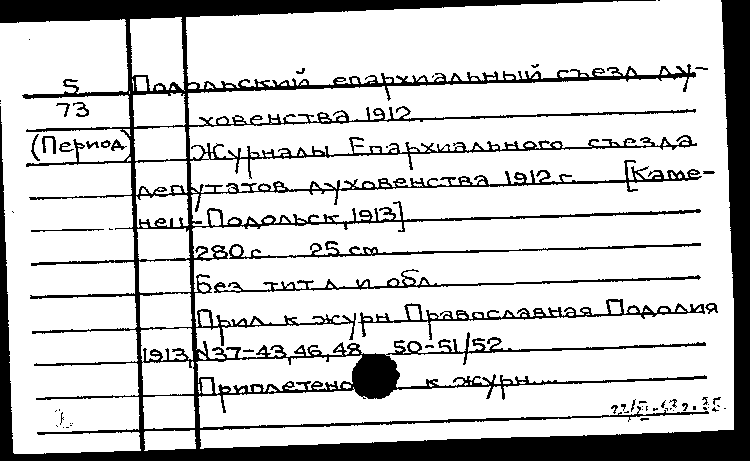 5 Подольский епархиальный съезд ду-
73 ховенства 1912.
(Период) Журналы Епархиального съезда
депутатов духовенства 1912 г. [Каме-
нец-Подольск, 1913]
280 с. 25 см
Без тит. л. и обл.
Прил. к журн. Православная Подолия
1913, №37-43, 46, 48, 50-51/52.
Приплетено к журн...